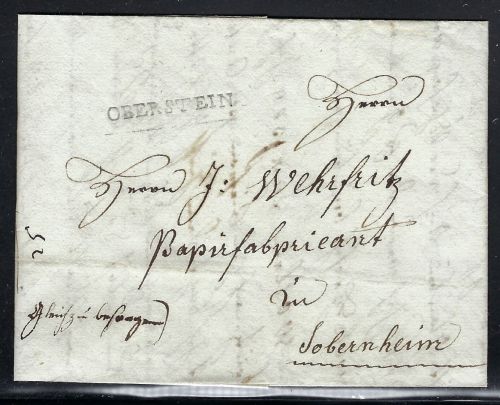 OBERSTEIN
Herrn
Herrn J: Wehrfritz
Papirfabricant
in
Sobernheim
Gleich zu besorgen